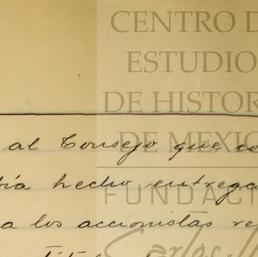 CENTRO D
ESTUDIO
DE HISTOR
DE MEXIC
al Consejo que co
ía hecho entrega
FUNDACI
a los accionistas re
Carlos